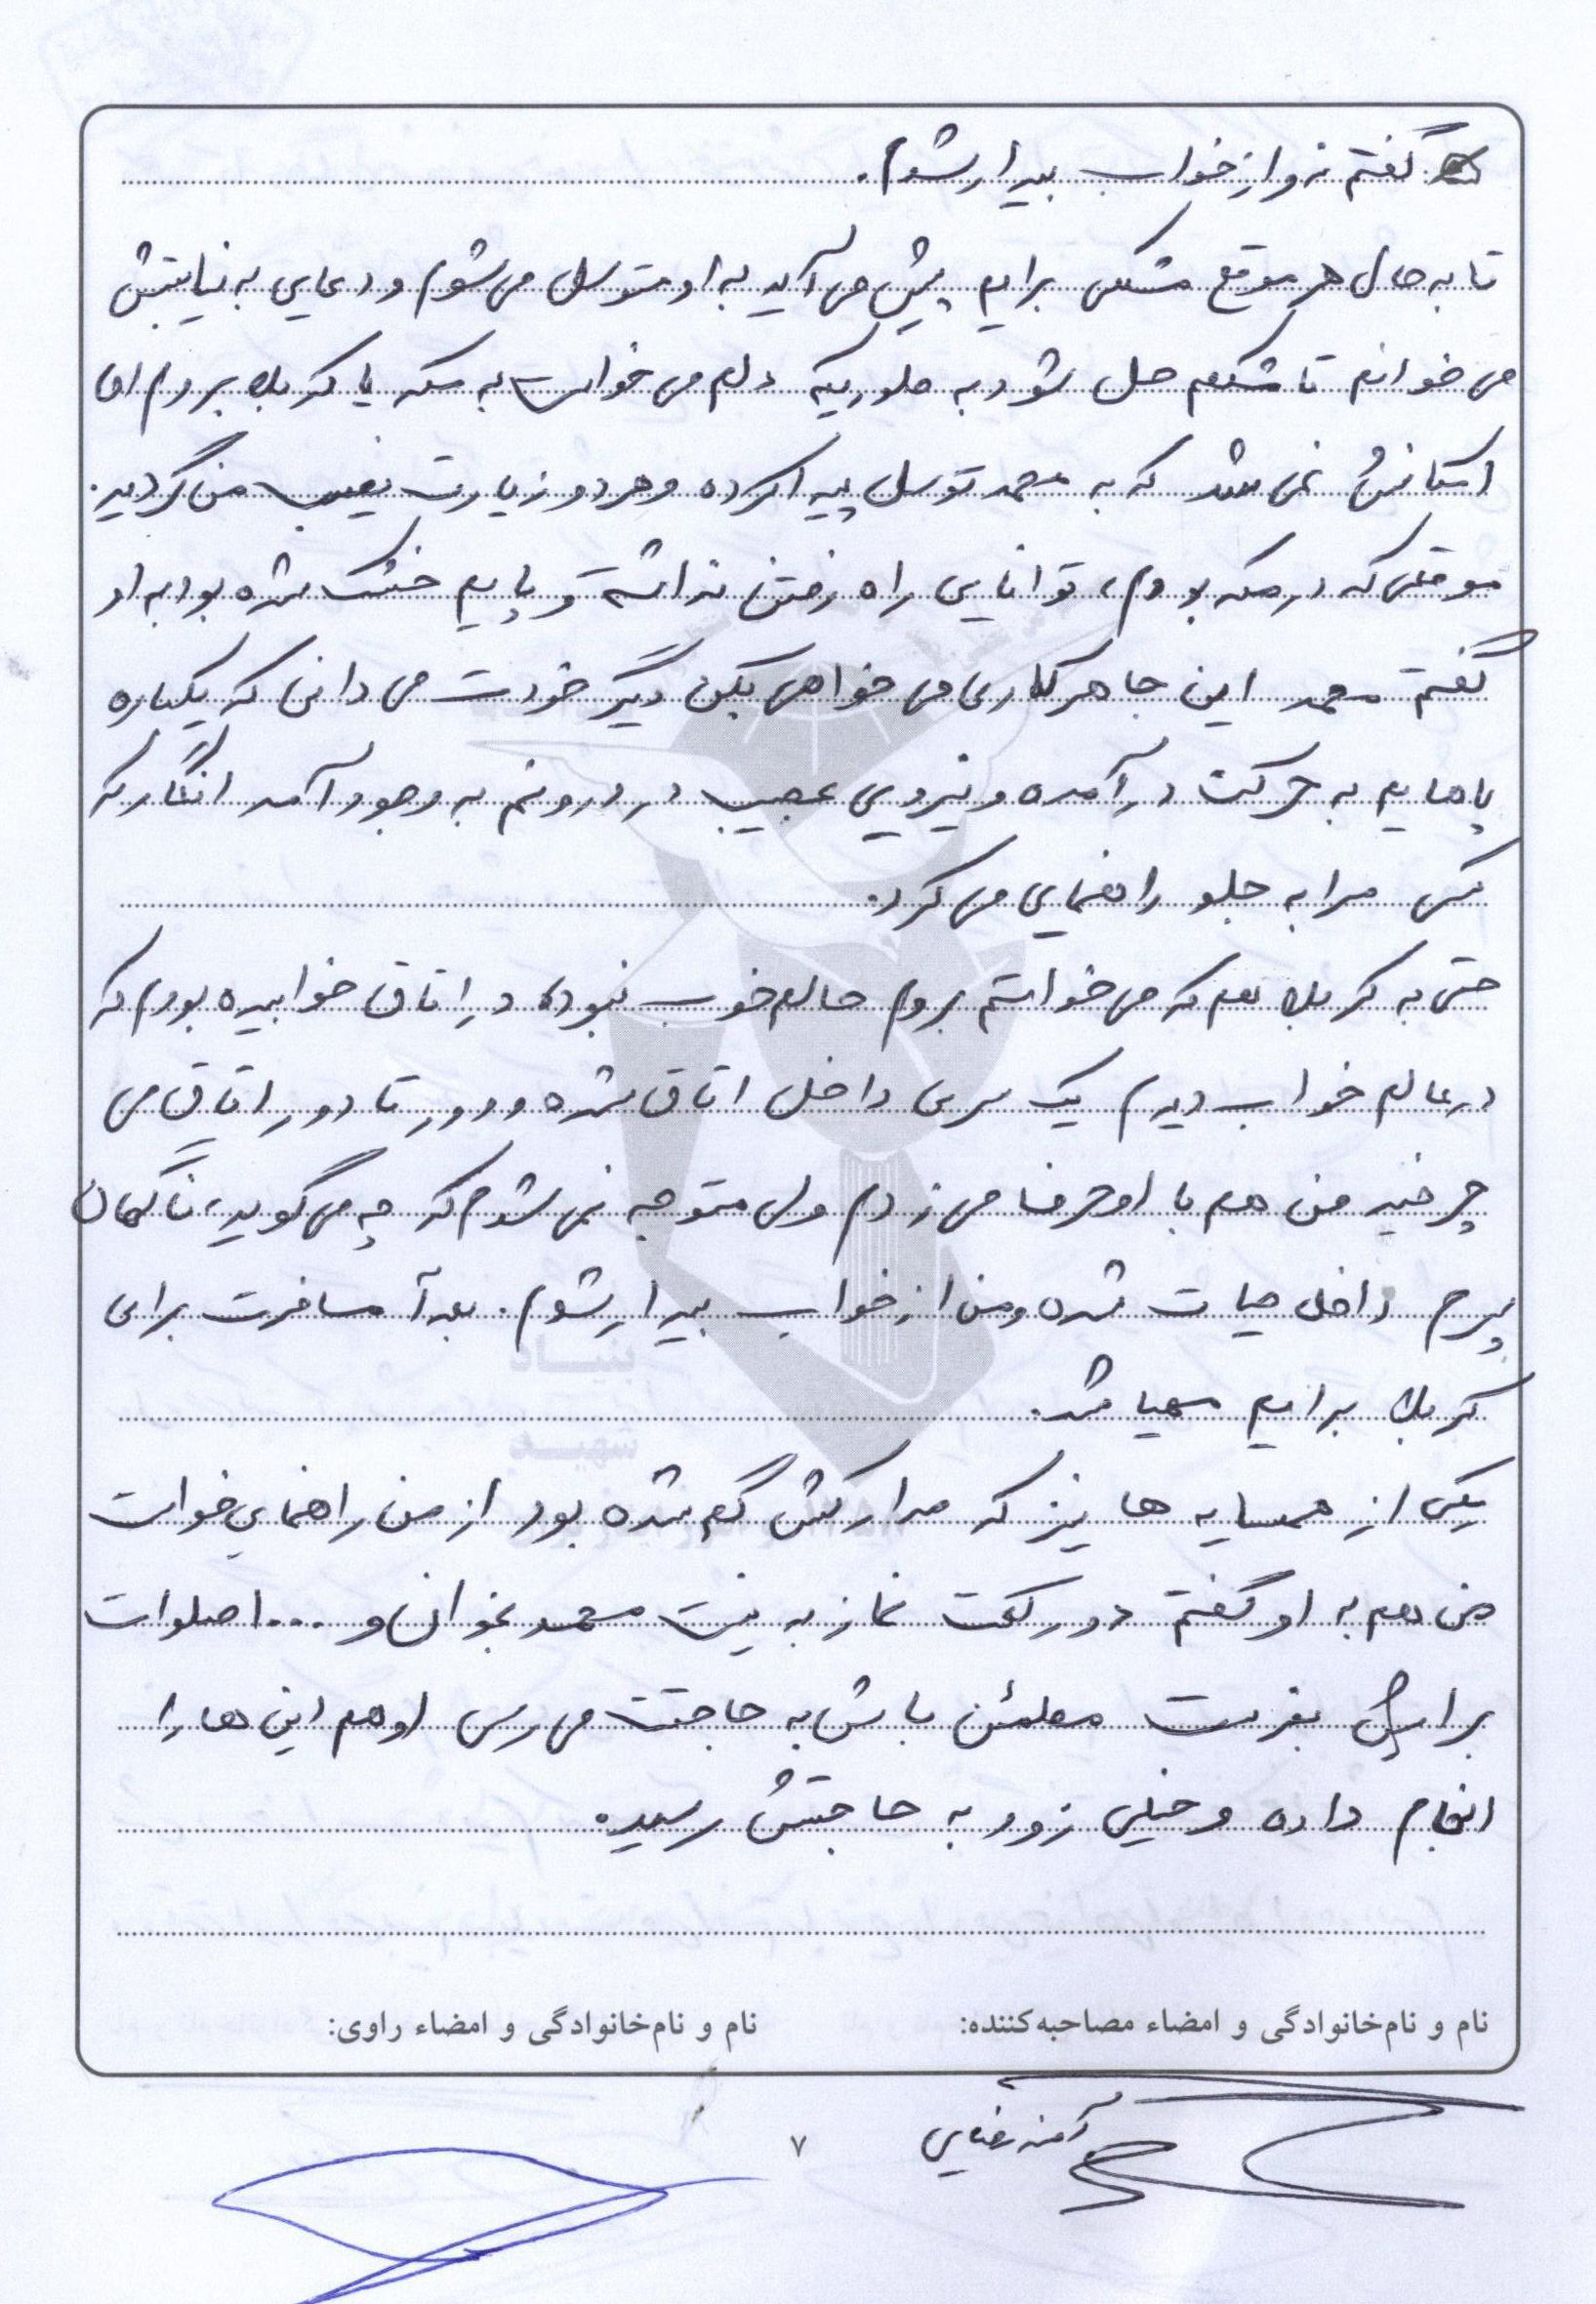 گفتم نه و از خواب بیدار شدم.
تا به حال هر موقع مشکلی برایم پیش می آید به او متوسل می شوم و دعایی به نیابتش
می خوانم تا مشکلم حل شود به طوریکه دلم می خواست به مکه یا کربلا بروم اما
استانش نمی شد که به محمد توسل پیدا کرده و هر دو زیارت نصیب من گردید.
موقعی که در مکه بودم، توانایی راه رفتن نداشته و پایم خشک شده بود به او
گفتم محمد این جا هر کاری می خواهی بکن دیگر خودت می دانی که یکباره
پاهایم به حرکت درآمده و نیرویی عجیب در درونم به وجود آمد انگار که
کسی مرا به جلو راهنمایی می کرد.
حتی به کربلا هم که می خواستم بروم حالم خوب نبوده در اتاق خوابیده بودم که
در عالم خواب دیدم یک سری داخل اتاق شده و دور تا دور اتاق می
چرخید من هم با او حرف می زدم ولی متوجه نمی شدم که چه می گوید، ناگهان
پسرم داخل حیات شده و من از خواب بیدار شدم. بعداً مسافرت برای
کربلا برایم مهیا شد.
یکی از همسایه ها نیز که مدارکش گم شده بود از من راهنمایی خواست
من هم به او گفتم دو رکعت نماز به نیت محمد بخوان و ۱۰۰۰ صلوات
برایش بفرست مطمئن باش به حاجتت می رسی او هم این ها را
انجام داده و خیلی زود به حاجتش رسیده.
نام و نام‌خانوادگی و امضاء مصاحبه‌کننده: نام و نام‌خانوادگی و امضاء راوی:
آمنه رضایی
۷
بنیاد
شهید